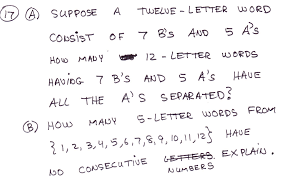 17 A SUPPOSE A TWELVE-LETTER WORD
CONSIST OF 7 B'S AND 5 A'S
HOW MANY 12-LETTER WORDS
HAVING 7 B'S AND 5 A'S HAVE
ALL THE A'S SEPARATED?
B HOW MANY 5-LETTER WORDS FROM
{1,2,3,4,5,6,7,8,9,10,11,12} HAVE
NO CONSECUTIVE LETTERS EXPLAIN.
NUMBERS